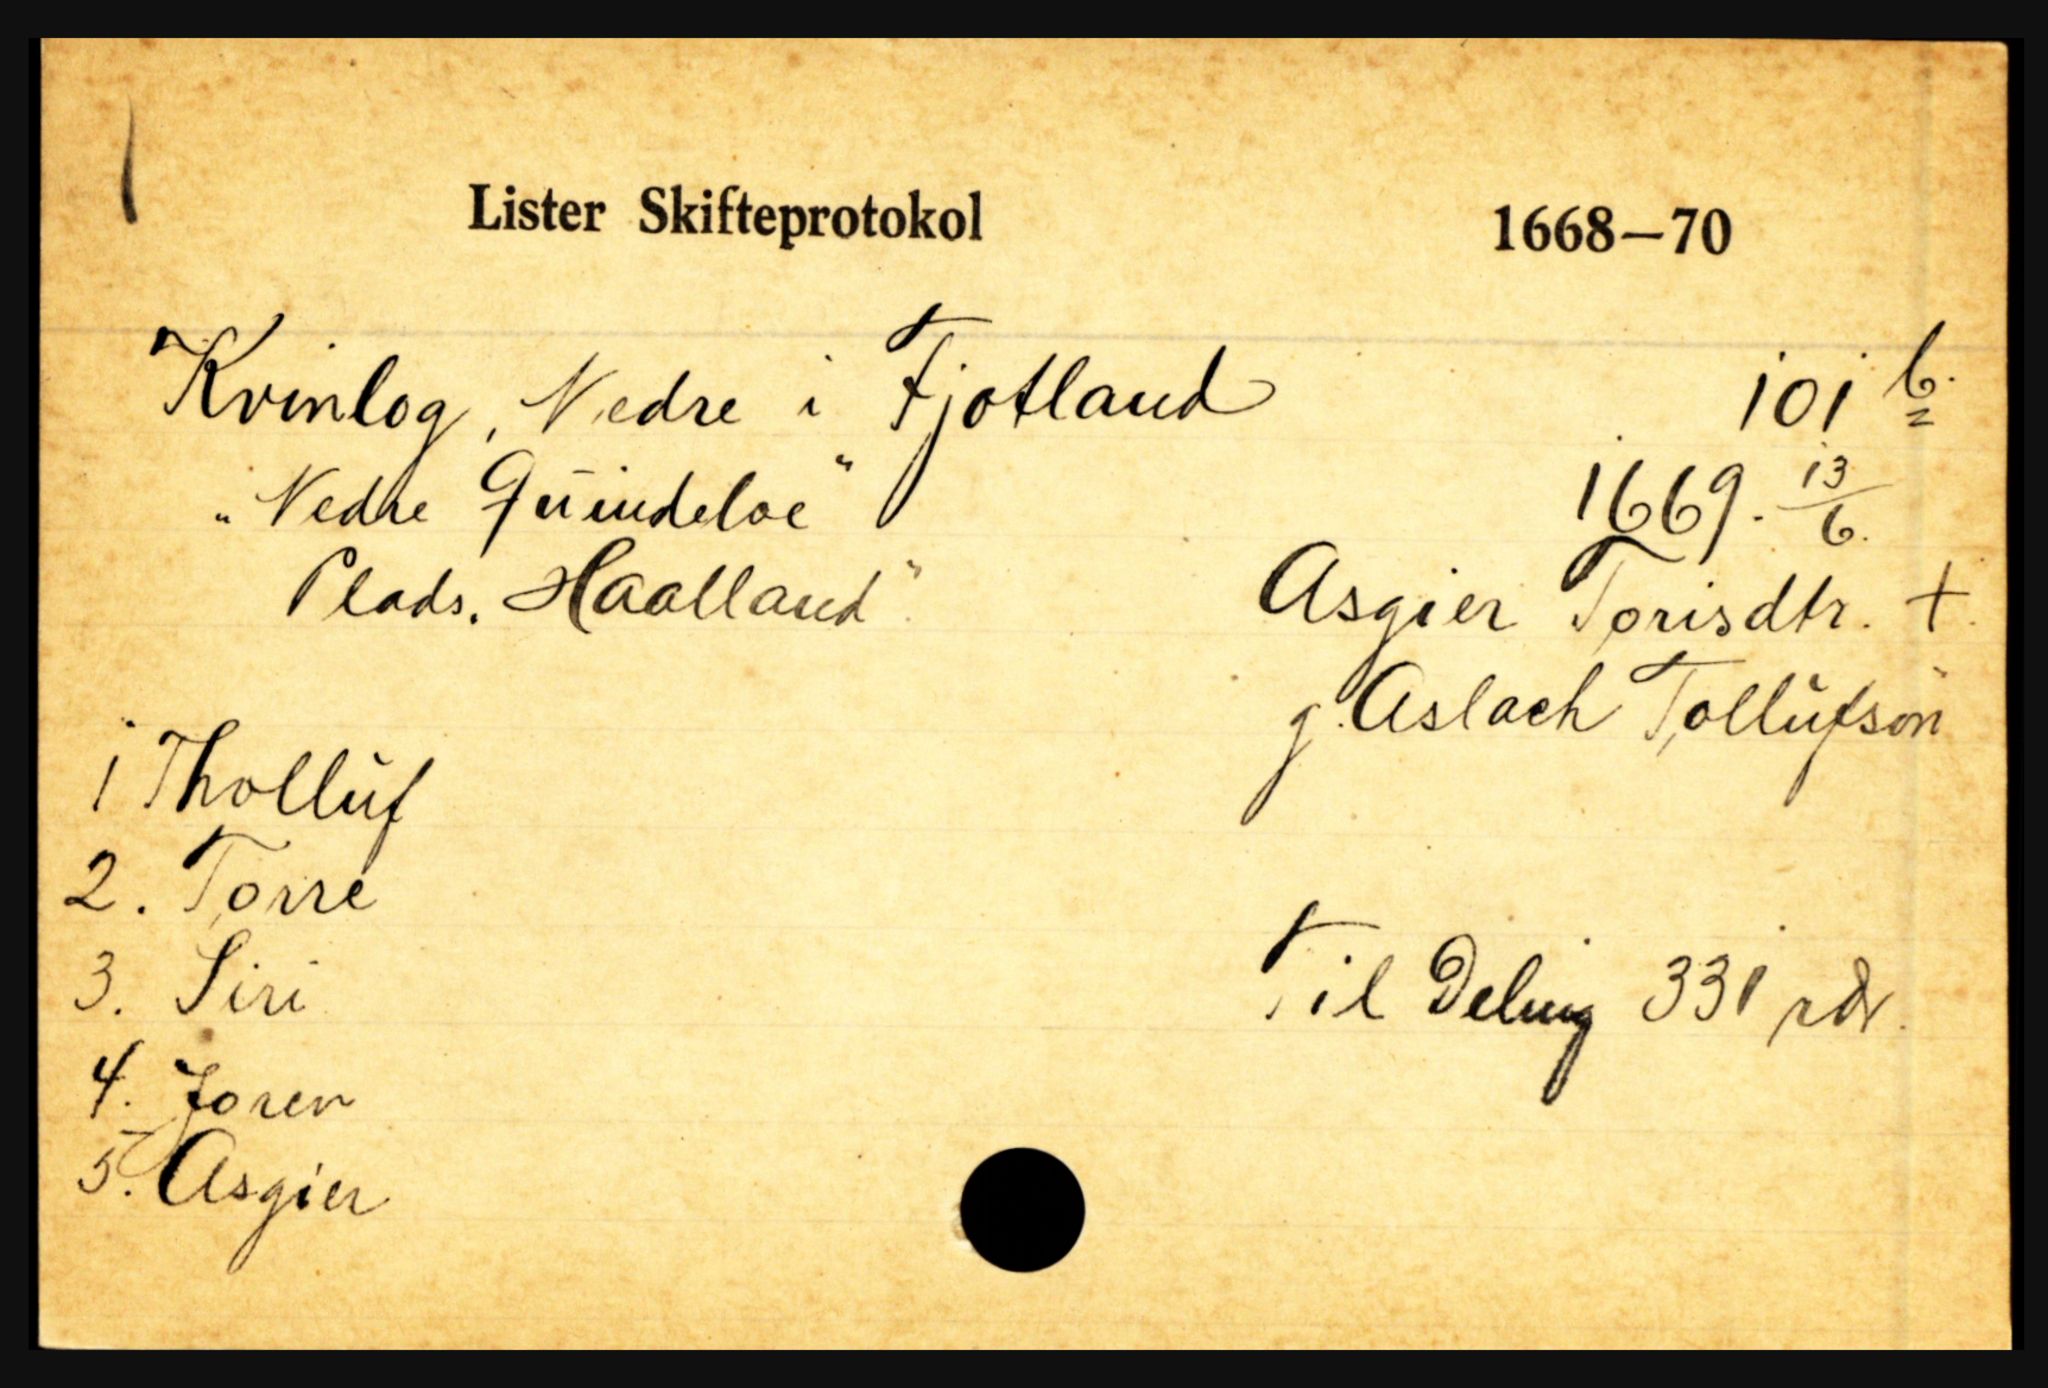 Lister Skifteprotokol 1668–70
Kvinlog, Nedre i Fjotland 101 b.
"Nedre Quindeloe" 1669. 13/6.
Plads. Haalland". Asgier Torisdtr. +.
g. Aslach Tollüfsön
1 Thollüf
2. Torre
3. Siri Til Deling 331 rdr.
4. Joren
5. Asgier